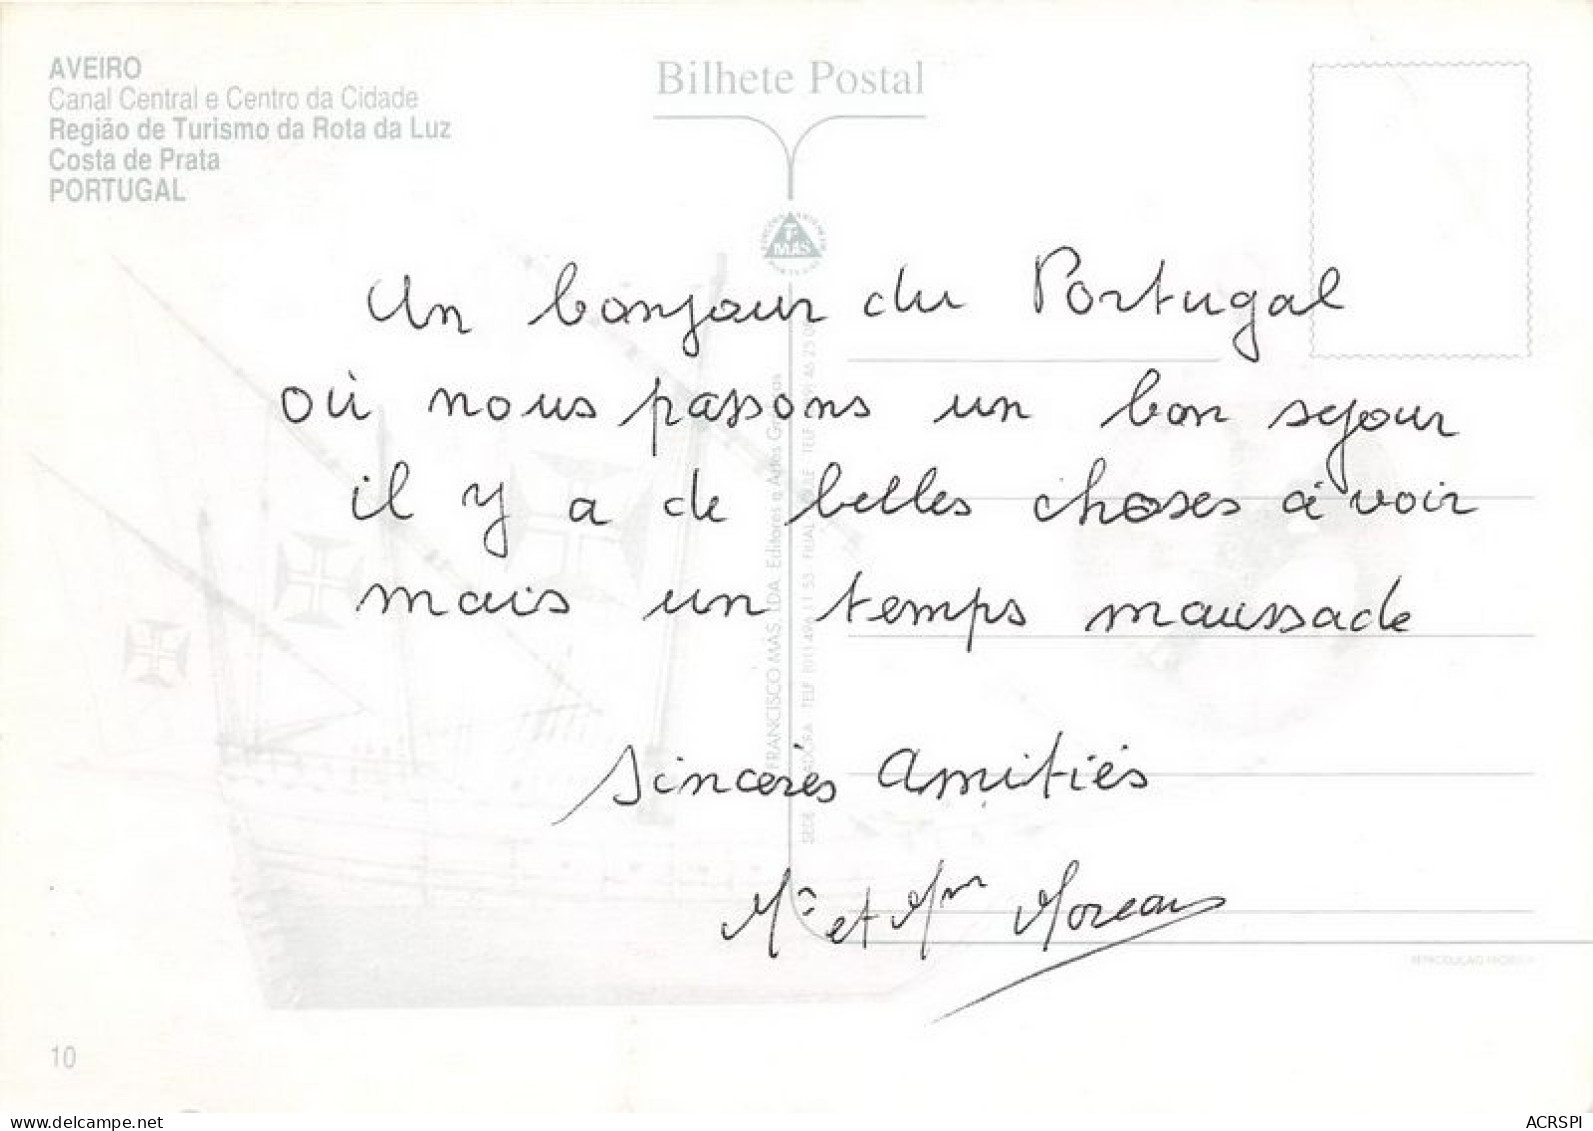 AVEIRO
Canal Central e Centro da Cidade
Região de Turismo da Rota da Luz
Costa de Prata
PORTUGAL
Bilhete Postal
MAS
Un bonjour du Portugal
où nous passons un bon sejour
il y a de belles choses à voir
mais un temps maussade
Sincères Amitiés
Mr et Mme Moreau
FRANCISCO MAS, LDA. Editores e Artes Gráficas
10
www.delcampe.net
ACRSPI